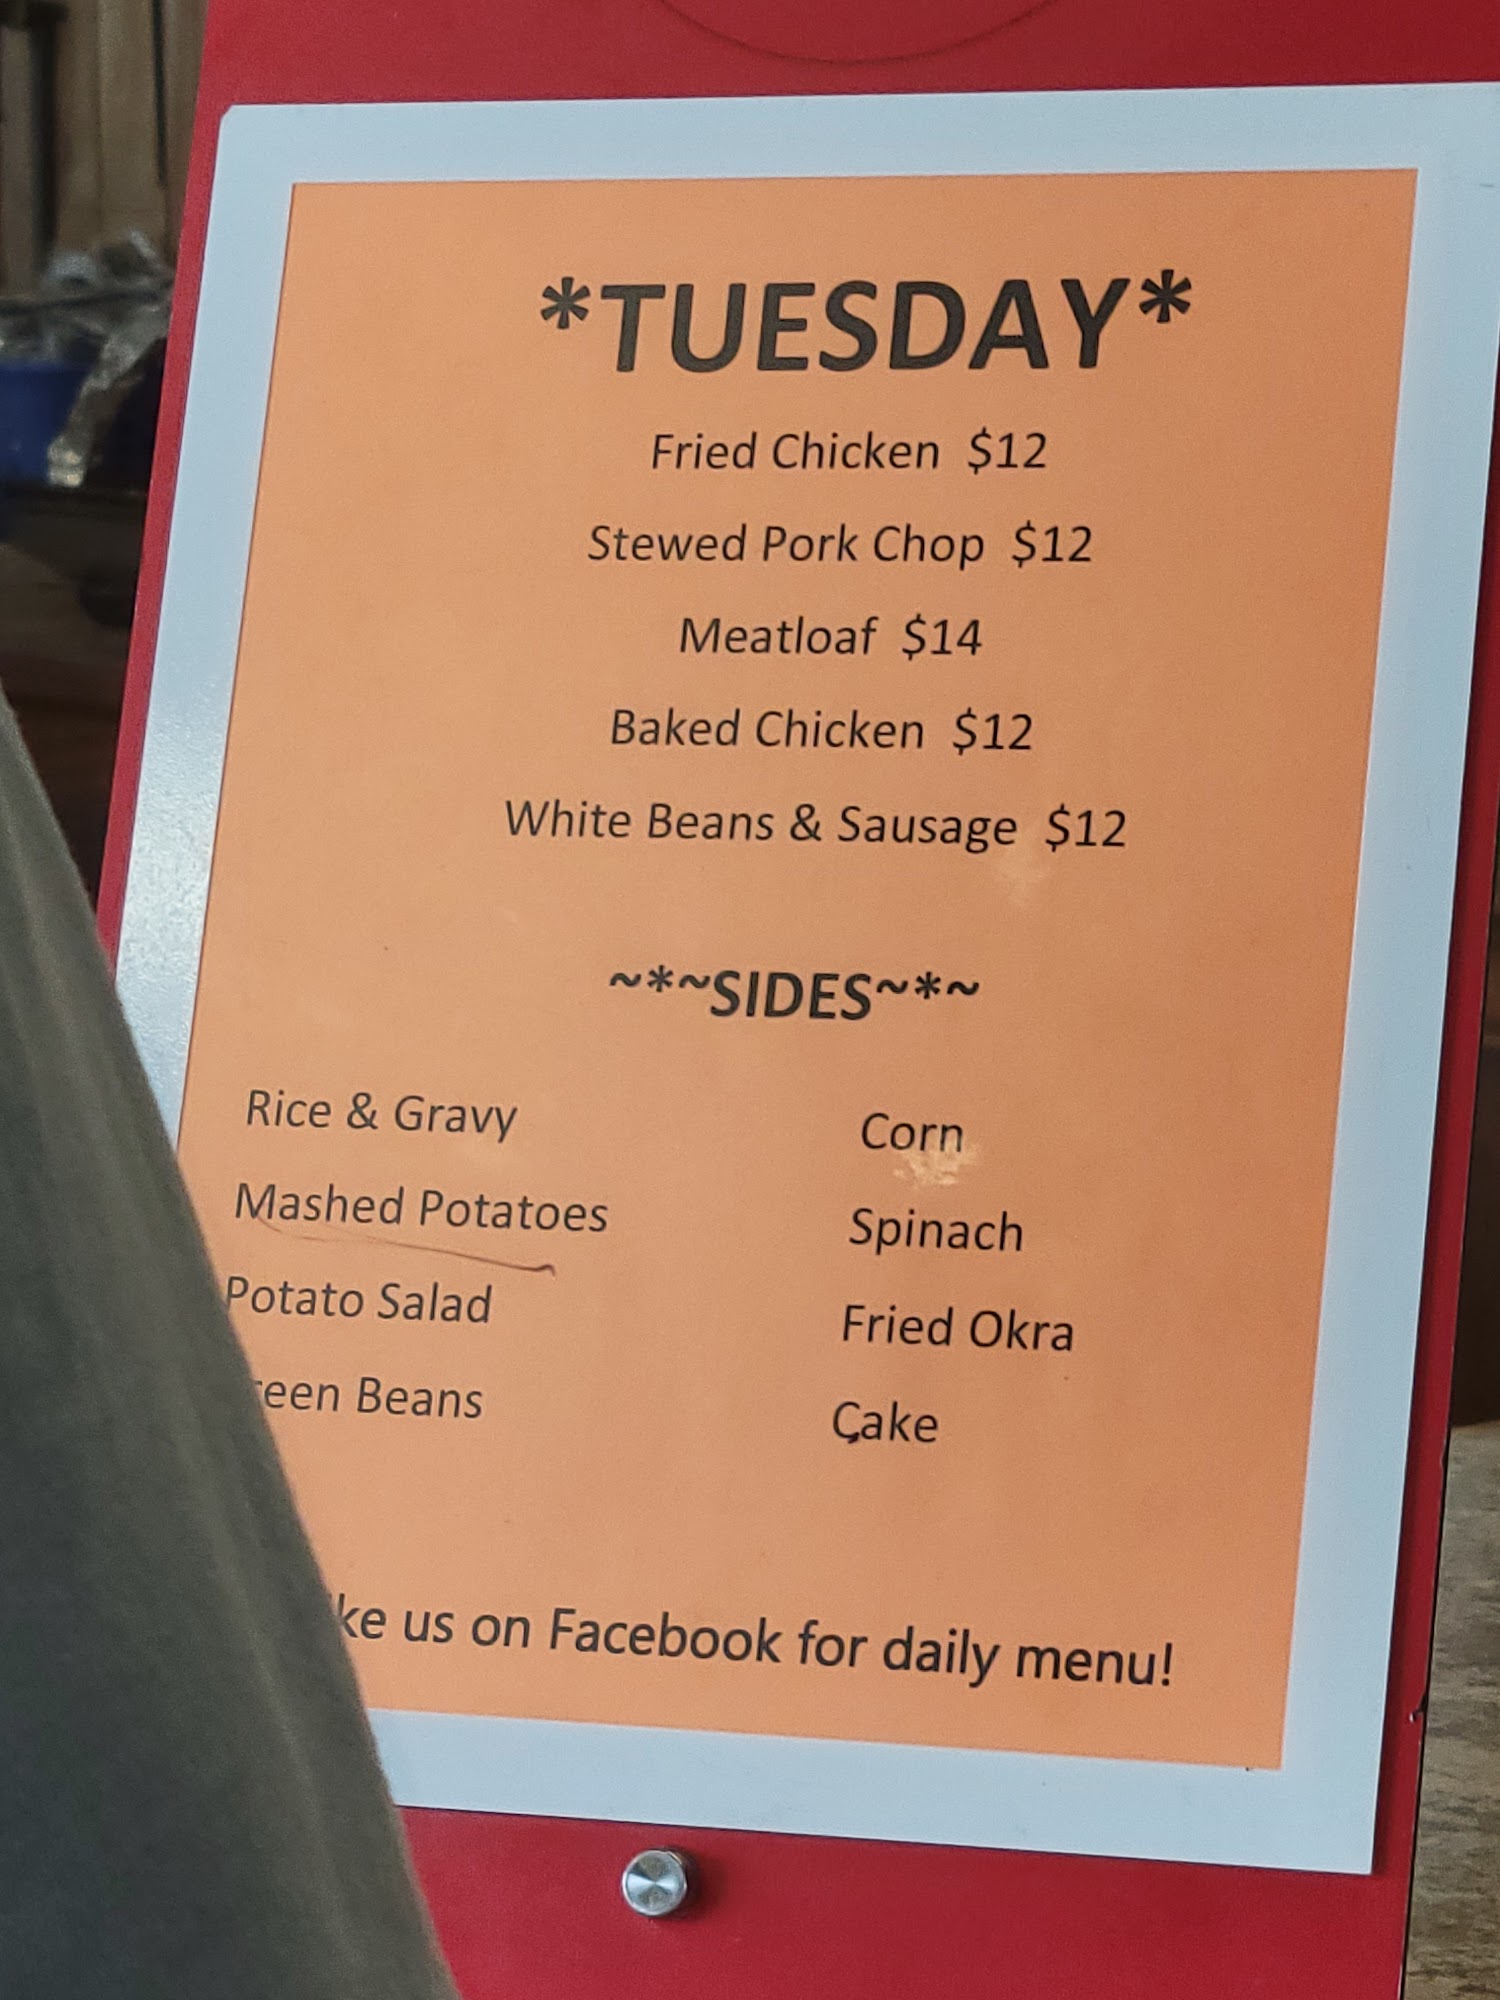 *TUESDAY*
Fried Chicken $12
Stewed Pork Chop $12
Meatloaf $14
Baked Chicken $12
White Beans & Sausage $12
~*~SIDES~*~
Rice & Gravy
Mashed Potatoes
Potato Salad
Beans
Corn
Spinach
Fried Okra
Cake
us on Facebook for daily menu!